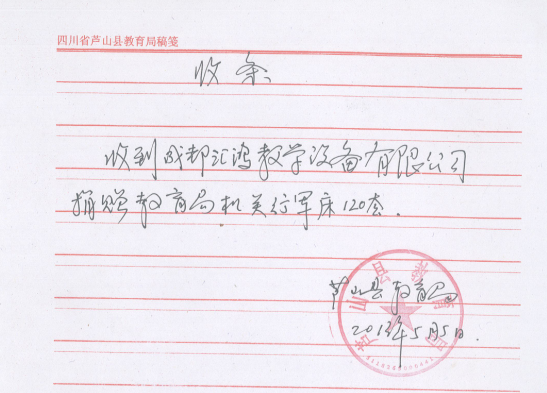 四川省芦山县教育局稿笺
收条
收到成都汇鸿教学设备有限公司
捐赠教育局机关行军床120套.
芦山县教育局
2013年5月5日.
芦山县教育局